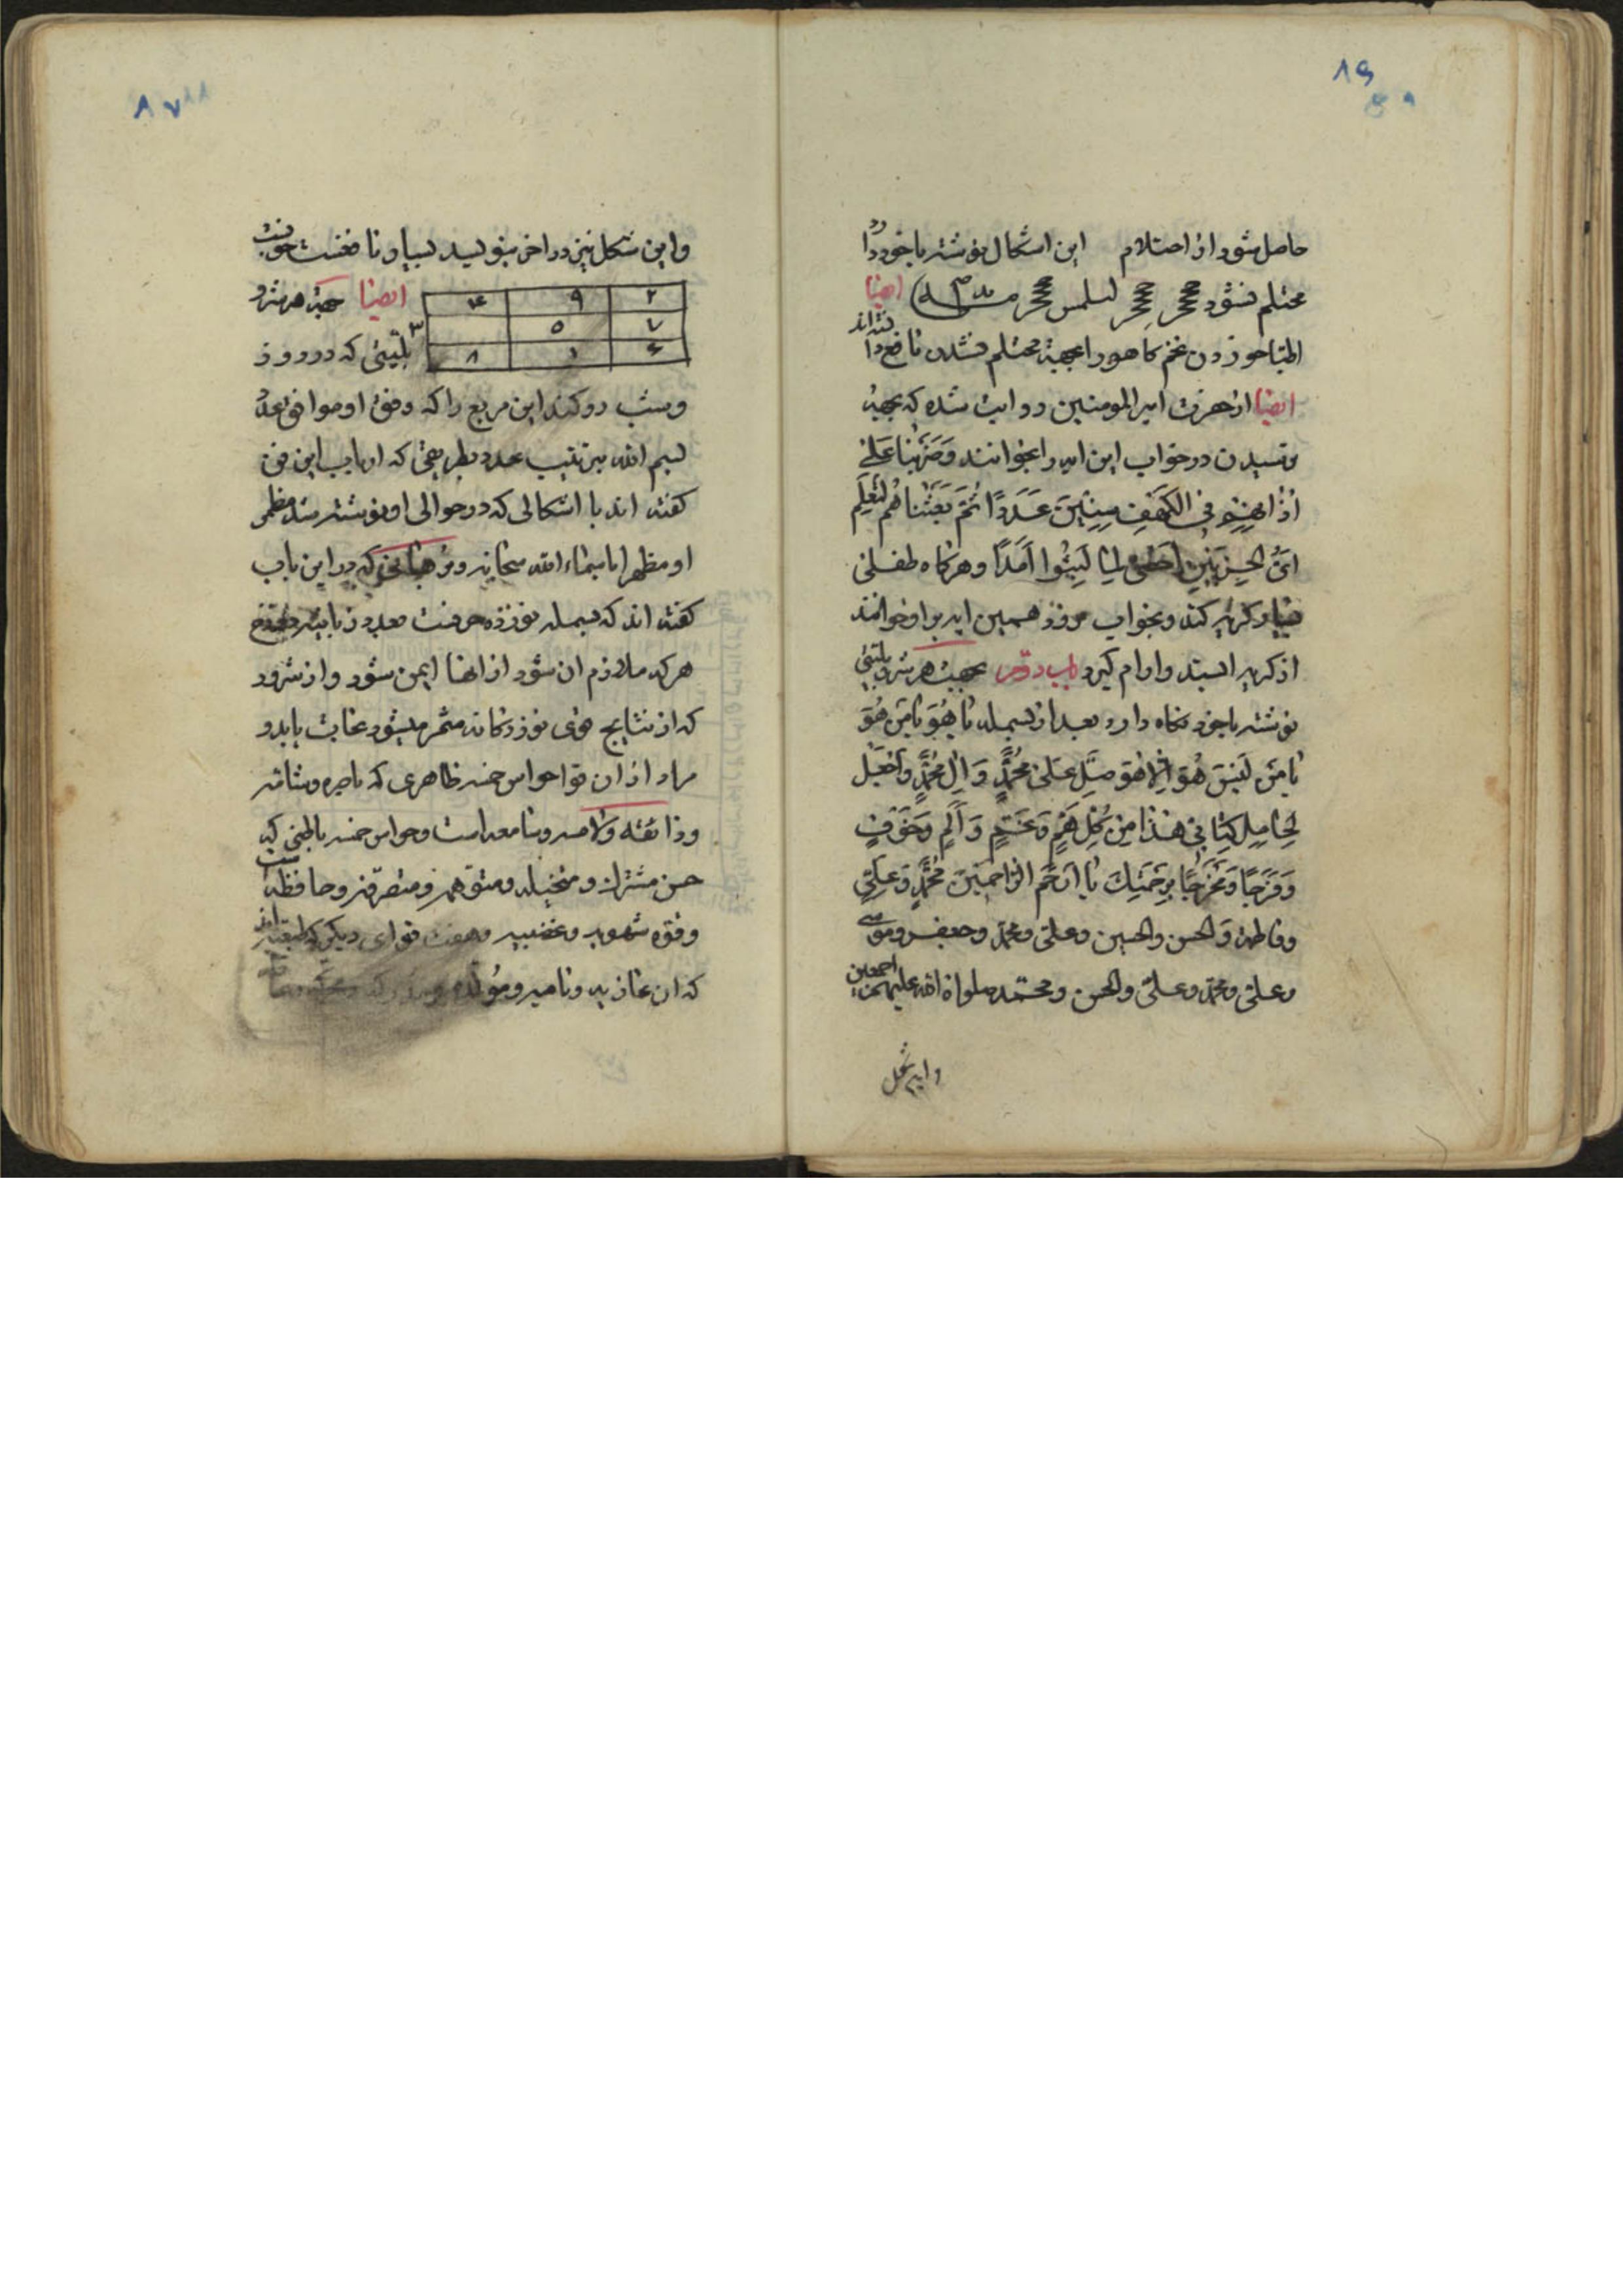 ۸۶
حاصل شود از احتلام این اشکال نوشته باخود دارد
محتلم نشود
ایضا
اطبا خوردن تخم کاهو را بجهة محتلم نشدن نافع دانسته‌اند
ایضا از حضرت امیر المومنین روایت شده که بجهة
ترسیدن در خواب این ایه را بخوانند وَضَرَبْنَا عَلٰی
اٰذٰانِهِمْ فِی الکَهْفِ سِنِینَ عَدَدًا ثُمَّ بَعَثْنٰاهُم لِنَعْلَمَ
اَیُّ الحِزبَیْنِ اَحْصٰی لِمٰا لَبِثُوا اَمَدًا وهرکاه طفلی
بسیار کریه کند و بخواب نرود همین ایه بر او خوانند
از کریه ایستد و ارام کیرد باب دویم بجهت هر شر و بلیتی
نوشته باخود نکاه دارد بعد از بسمله یٰا هُوَ یٰا مَن هُوَ
یٰا مَن لَیْسَ هُوَ اِلّا هُوَ صَلِّ عَلٰی مُحَمَّدٍ وَ اٰلِ مُحَمَّدٍ وَاجْعَلْ
لِحٰامِلِ کِتٰابِی هٰذٰا مِن کُلِّ هَمٍّ وَ غَمٍّ وَ اَلَمٍ وَخَوْفٍ
فَرَجًا وَمَخْرَجًا بِرَحْمَتِكَ یٰا اَرْحَمَ الرّٰاحِمِینَ مُحَمَّدٍ وَعَلِیٍّ
وفاطمة وَالحسن والحسین وعلی ومحمّد وجعفر وموسی
وعلی ومحمّد وعلی والحسن ومحمّد صلواة الله علیهم اجمعین
واین شکل
۸۷
واین شکل نیز در اخر بنویسد بسیار نافعست
۲ ۹ ۴
۷ ۵ ۳
۶ ۱ ۸
ایضا جهة هر شر و
بلیتی که در روز
وشب رو کند این مربع را که وفق او موافق عدد
بسم الله بترتیب عدد بطریقی که ارباب این فن
کفته اند با اشکالی که در حوالی او نوشته شد مظهر
او مظهر ایا شاء الله سبحانه و که در این باب
کفته اند که بسمله نوزده حرفست بعدد زبانیه دوزخ
هرکه ملازم ان شود از انها ایمن شود واز شرور
که از نتایج قوی نوزدکانه مثمر میشود نجات یابد و
مراد از ان قوا حواس خمسه ظاهری که باصره وشامّه
وذائقه ولامسه وسامعه است وحواس خمسه باطنی که
حس مشترك ومتخیله ومتوهمه ومتصرّفه وحافظه است
وقوه شهویه وغضبیه وهفت قوای دیکر که طبیعیه اند
که ان غاذیه ونامیه ومُولّده